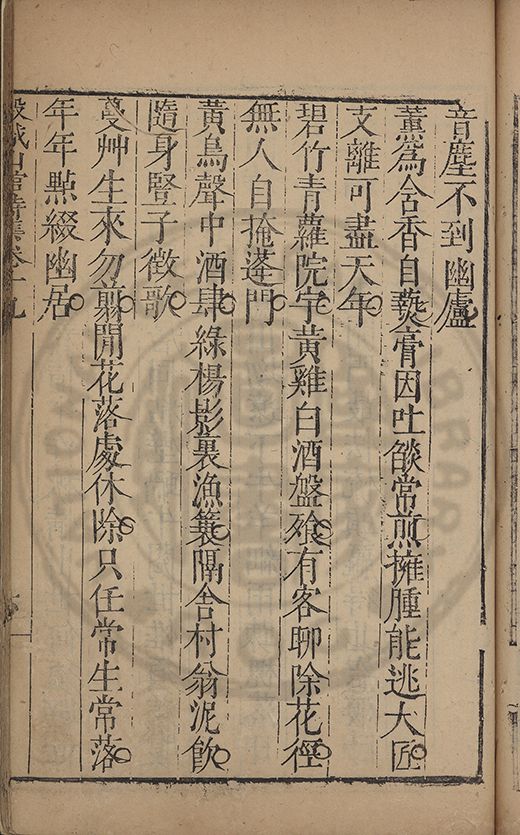 音塵不到幽廬
薰爲含香自爇膏因吐燄常煎擁腫能逃大匠
支離可盡天年
碧竹青蘿院宇黃雞白酒盤飱有客聊除花徑
無人自掩蓬門
黃鳥聲中酒肆綠楊影裏漁簑隔舍村翁泥飲
隨身豎子徵歌
蔓艸生來勿翦閒花落處休除只任常生常落
年年點綴幽居
穀城山館詩集卷十九